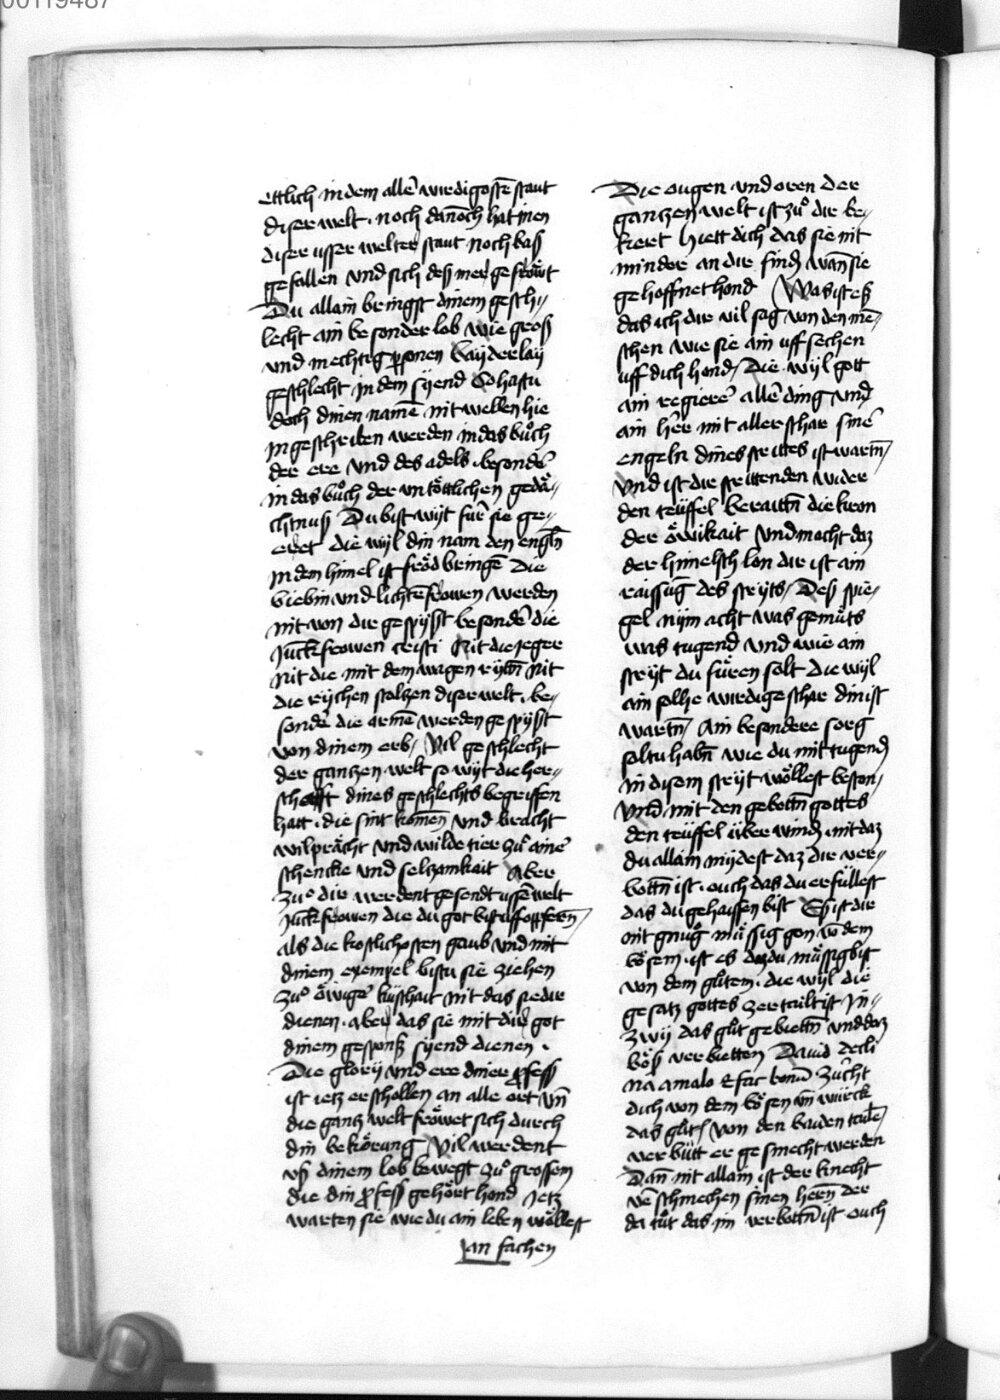 00119487
ettlich in dem allē wirdigostē staut
diser welt . noch dānoch hat inen
diser usser welter staut noch baß
gefallen vnd sich deß mer gefröwt
Du allain bringst dinem geschi-
lecht ain besonder lob wie groß
vnd mechtig psonen baÿderlaÿ
geschlecht in dem sÿend So hastu
doch dinen namē nit wellen hie
in geschriben werden in das bůch
der ere vnd des adels . besonder
in das bůch der vntöttlichen gedä-
chtnuß Du bist wÿt für sie ge-
eret die wÿl din nam den engln
in dem himel ist fröd bringē Die
nit von dir gespÿßt besonder die
Junckfrowen cristi Nit die Jeger
Nit die mit dem wagen rÿttn Nit
die rÿchen stoltzen diser welt . be-
sonder die armē werden gespÿßt
von dinem erb / Vil geschlecht
der gantzen welt so wÿt die her-
schafft dines geschlechts begriffen
hatt . die sint komen vnd bracht
wilprächt vnd wilde tier zů ainē
schencke vnd seltzamkait Aber
zů dir werdent gesendt uß der welt
Junckfrowen die du got bist uff opfferen /
als die kostlichosten gaub vnd mit
dinem exempel bistu sie ziehen
zů öwiger küschait nit das sie dir
dienen . aber das sie mit dir got
dinem gesponß sÿend dienen .
Die glorÿ vnd ere diner pfeß
ist ietz erschollen an alle ort vn
die gantz welt fröwet sich durch
din bekörung Vil werdent
vß dinem lob bewegt zů grossem
die din pfeß gehört hond Jetz
warten sie wie du ain leben wöllest
an fachen
Die ougen vnd oren der
gantzen welt ist zů dir be-
kert Hiett dich das sie nit
minder an dir find wān sie
gehoffnet hond Was ist eß
das ich dir vil sag von den mē-
schen wie sie ain uff sechen
uff dich hond / Die wÿl gott
ain regierer allē ding vnd
ain her mit aller schar sinē
engeln dines strittes ist wartn /
Vnd ist dir strittenden wider
den teüffel beraittn die kron
der öwikait Vnd macht daz
der himelsch lon dir ist ain
raissūg des strÿts / Deß spie-
gel nÿm acht was gemüts
was tugend vnd wie ain
strÿt du füren solt die wÿl
ain solche wirdige schar din ist
wartn / Ain besondere sorg
soltu habn wie du mit tugend
in disem strÿt wöllest beston /
Vnd mit den gebottn gottes
den teüffel über wind . nit daz
du allain mÿdest daz dir ver-
bottn ist . ouch das du erfüllest
das du gehaissen bist Eß ist dir
nit gnüg müssig gon vo dem
bösem . ist es daz du müssig bist
von dem gůtem . die wÿl die
gesatz gottes zertailt ist in-
zwÿ das gůt gebiettn vnd daz
böß verbietten Dauid decli
na a malo et fac bonū Zücht
dich von dem bösen vn würck
das gůt / Von den baiden
verbüt er gesmecht werden
Dan nit allain ist der knecht
vēschmechen sinen herrn der
da tůt das im verbottn ist ouch